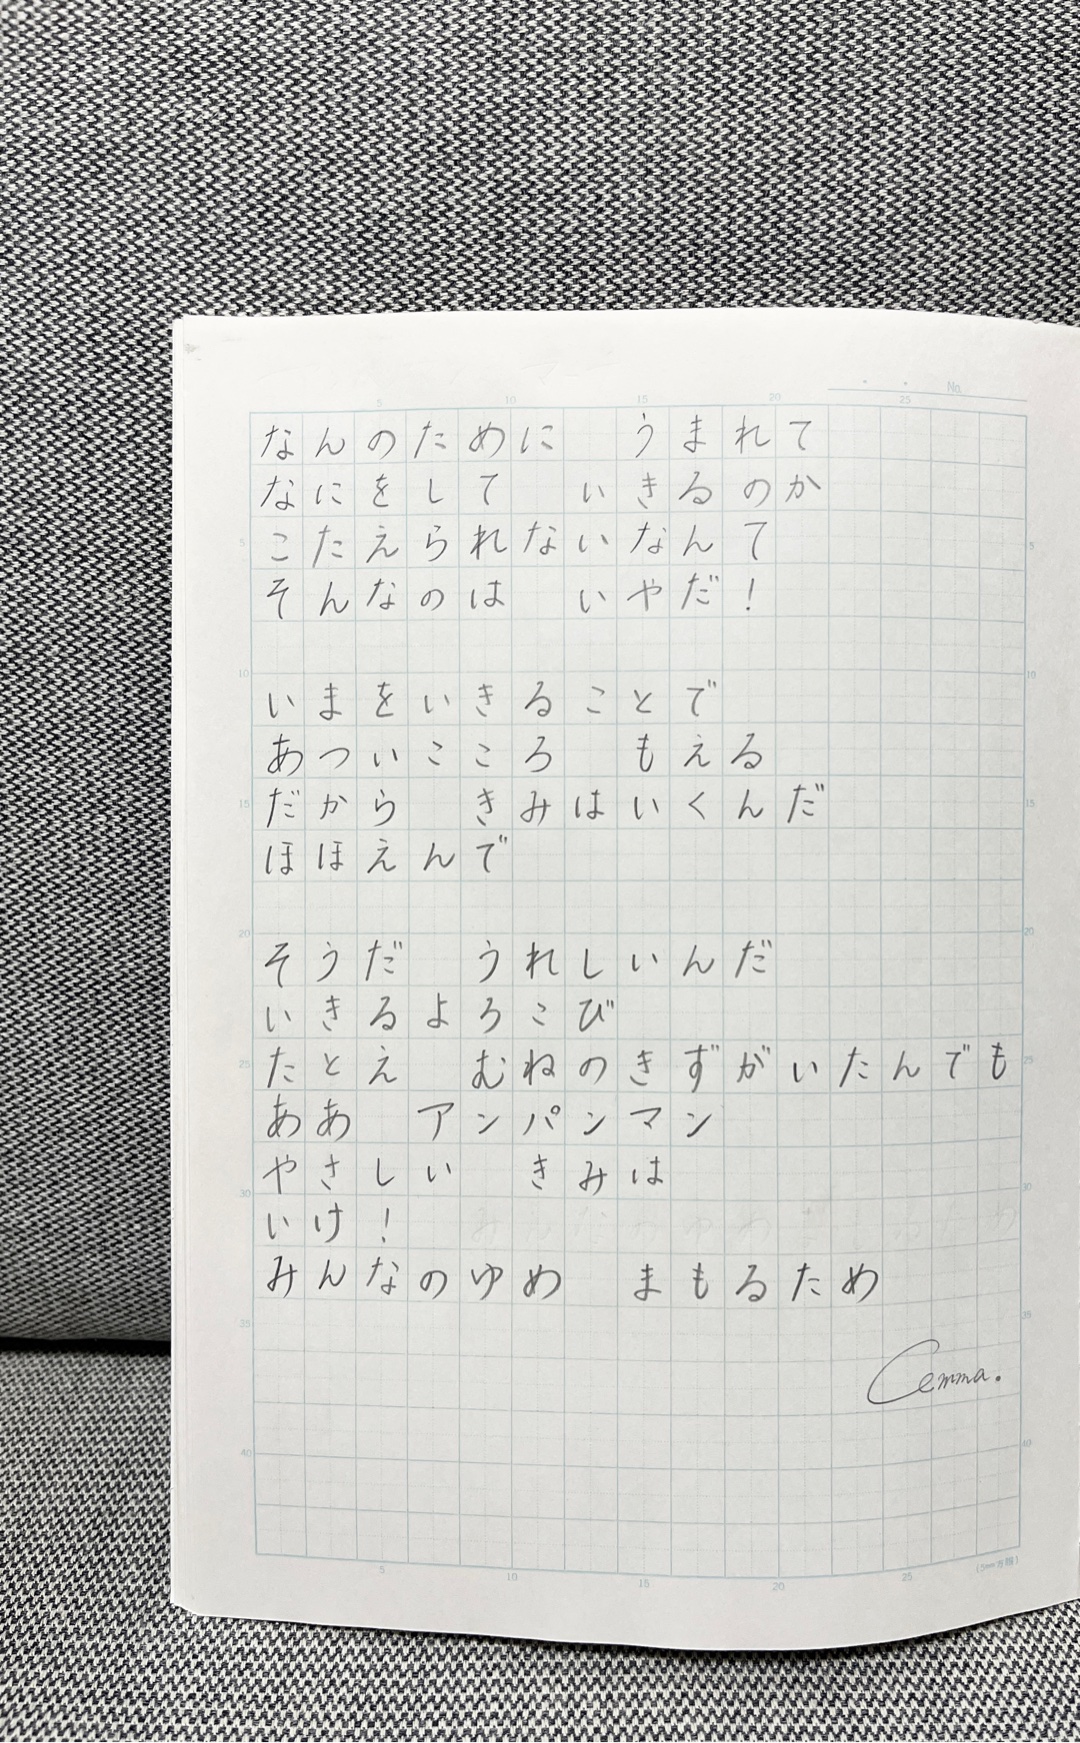 No.
5 10 15 20 25
なんのために　うまれて
なにをして　いきるのか
こたえられないなんて
そんなのは　いやだ！
いまをいきることで
あついこころ　もえる
だから　きみはいくんだ
ほほえんで
そうだ　うれしいんだ
いきるよろこび
たとえ　むねのきずがいたんでも
ああ　アンパンマン
やさしい　きみは
いけ！
みんなのゆめ　まもるため
Cemma.
5 10 15 20 25
(5mm方眼)